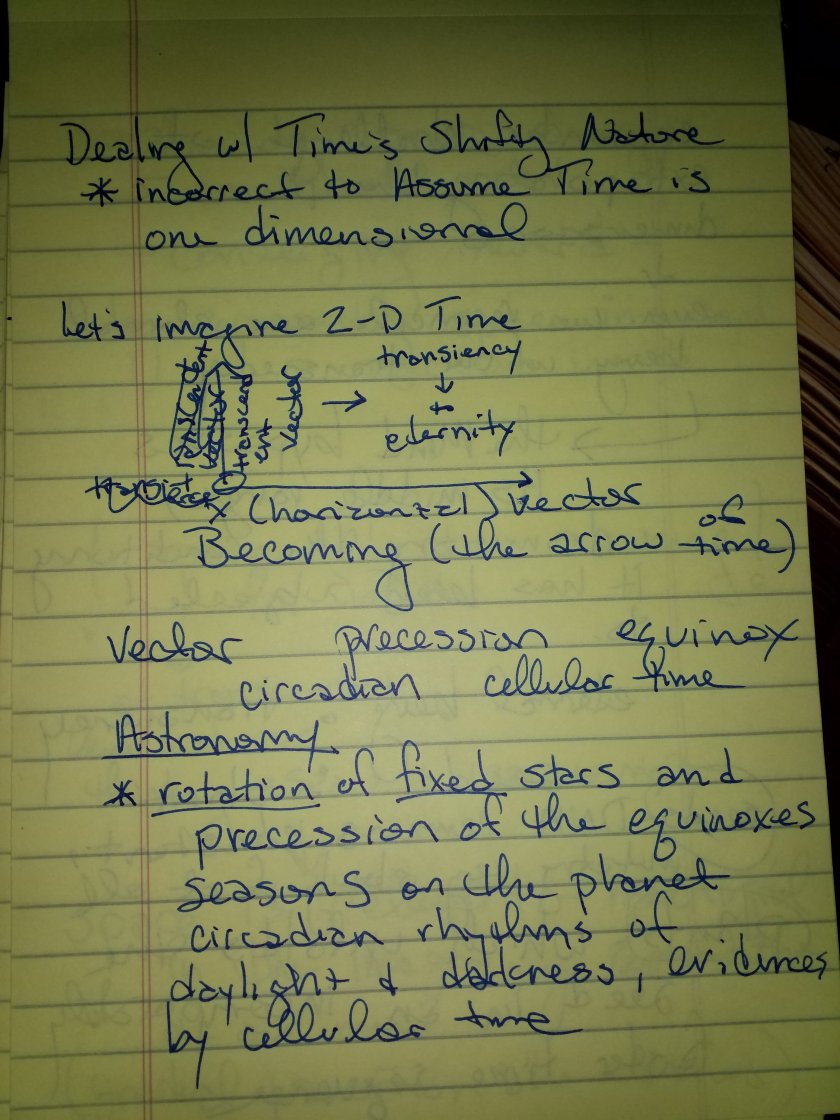 Dealing w/ Time's Shifty Nature
* incorrect to Assume Time is
one dimensional
Let's imagine 2-D Time
transcendent
vector
transcend
ent
vector
→ transiency
↓
to
eternity
x (horizontal) vector
Becoming (the arrow of time)
Vector precession equinox
circadian cellular time
Astronomy
* rotation of fixed stars and
precession of the equinoxes
seasons on the planet
circadian rhythms of
daylight & darkness, evidences
by cellular time